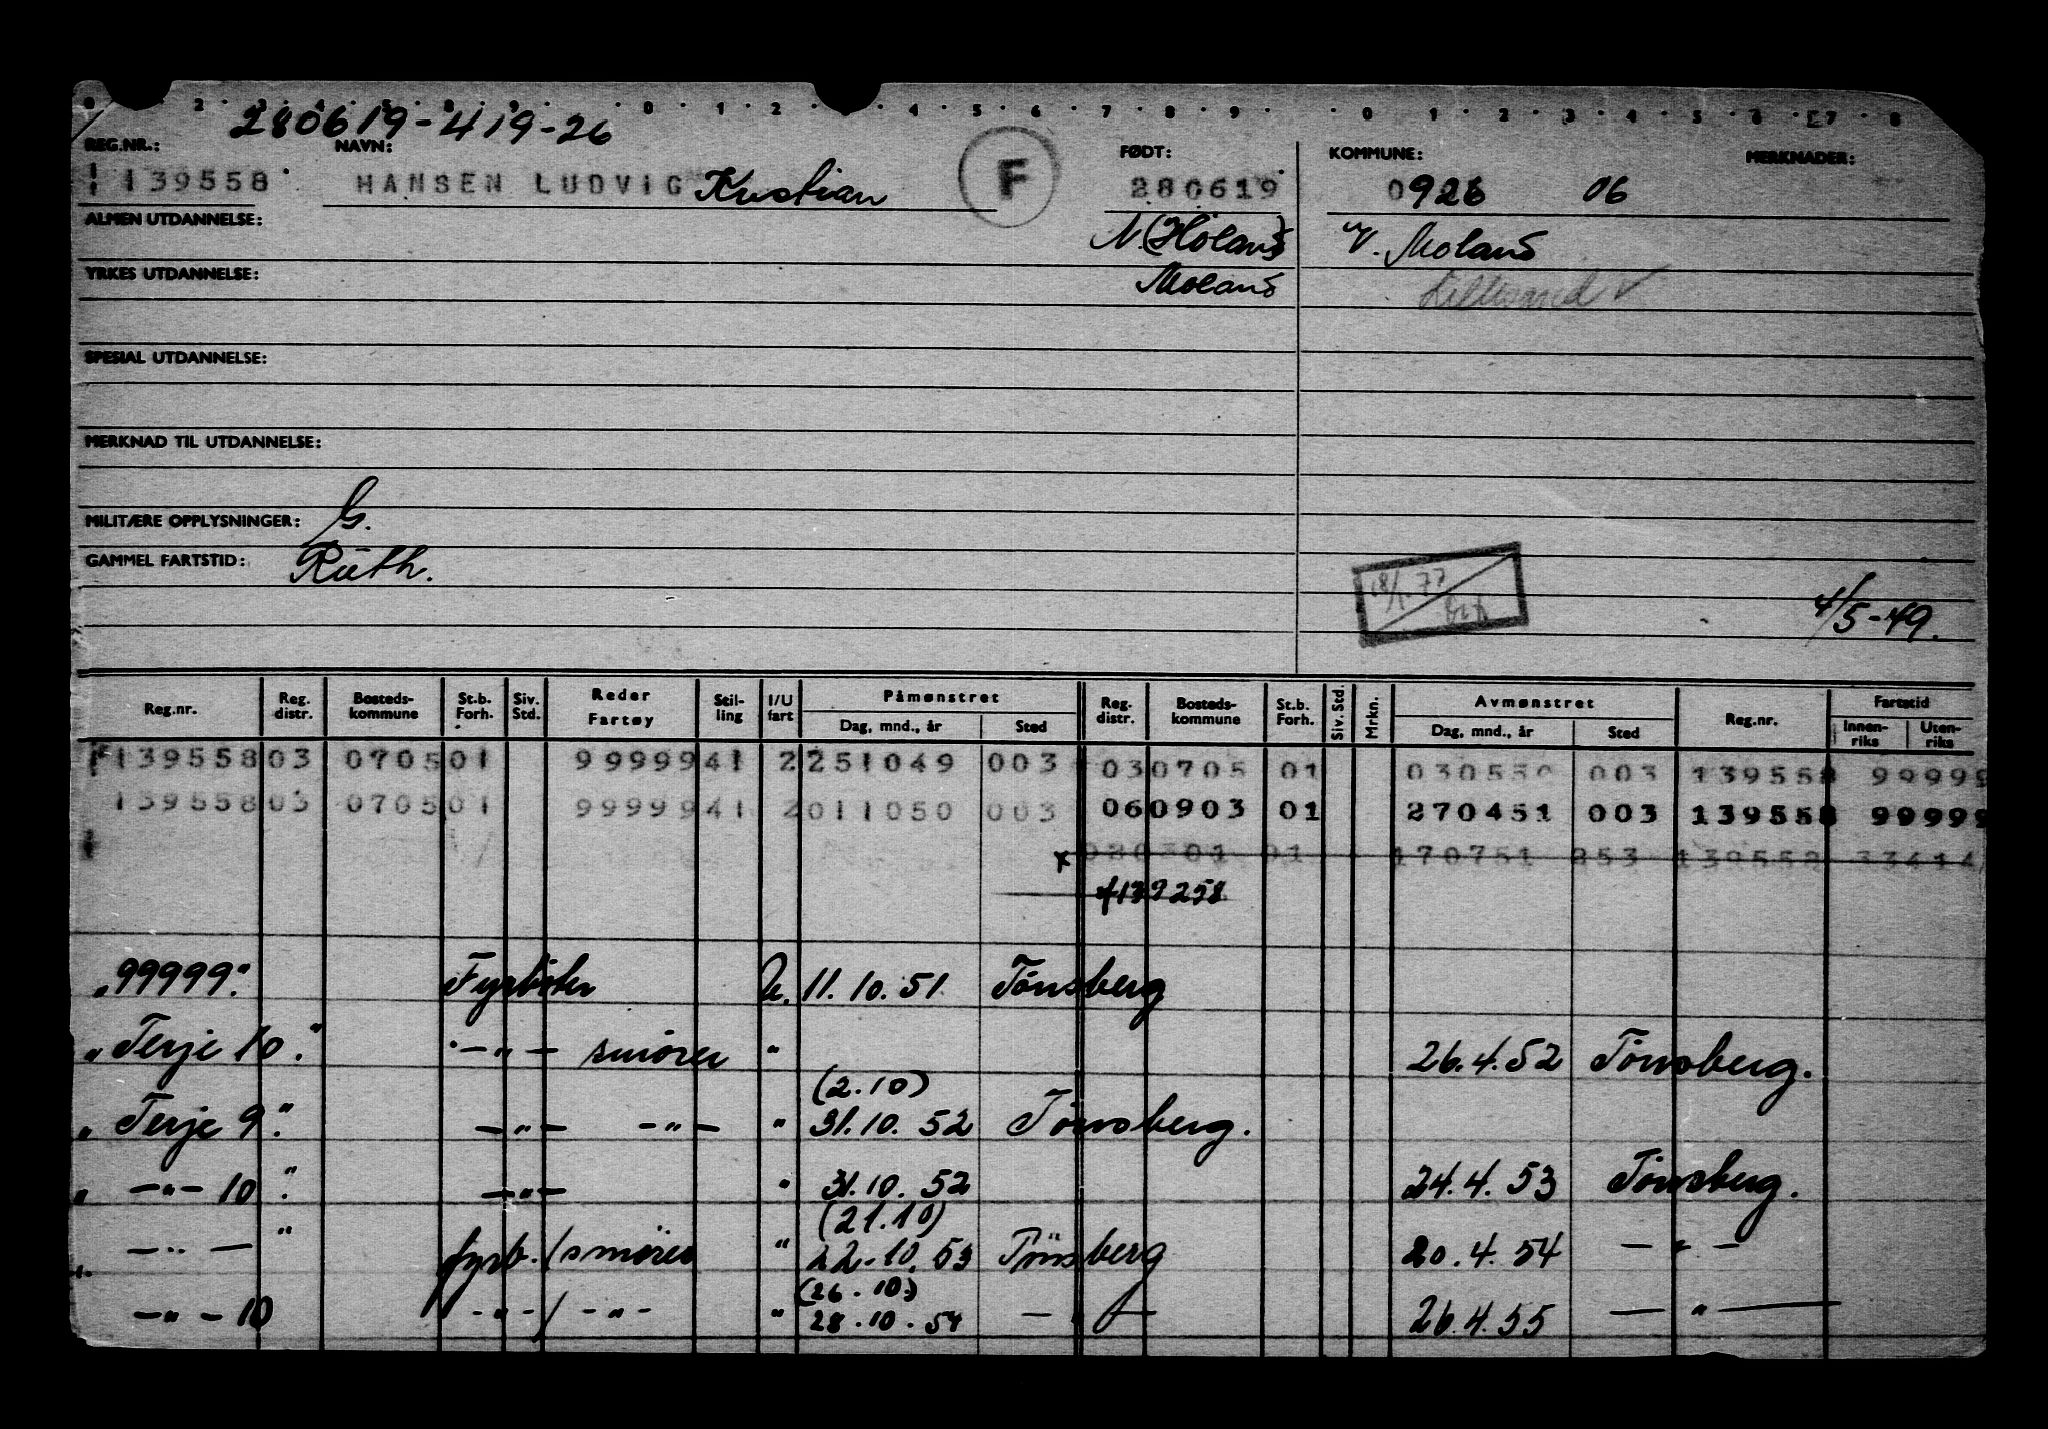 280619-419-26
REG.NR.: NAVN: FØDT: KOMMUNE: MERKNADER:
139558 HANSEN LUDVIG Kristian F 280619 0926 06
ALMEN UTDANNELSE: N. (Höland) V. Moland
YRKES UTDANNELSE: Moland Lillesand ✓
SPESIAL UTDANNELSE:
MERKNAD TIL UTDANNELSE:
MILITÆRE OPPLYSNINGER: G.
GAMMEL FARTSTID: Rüth.
18/1.77
4/5-49.
Reg.nr. Reg. distr. Bosteds-kommune St.b. Forh. Siv. Std. Reder Fartøy Stil-ling I/U fart Påmønstret Dag, mnd., år Sted Reg. distr. Bosteds-kommune St.b. Forh. Siv. Std. Mrkn. Avmønstret Dag, mnd., år Sted Reg.nr. Fartstid Innen-riks Uten-riks
139558 03 0705 01 99999 41 2 251049 003 03 0705 01 030550 003 139558 99999
139558 03 0705 01 99999 41 2 011050 003 06 0903 01 270451 003 139558 99999
x 080301 01 170751 853 139558 33414
139258
"99999." Fyrböter U. 11.10.51 Tönsberg
"Terje 10." -"- smörer " 26.4.52 Tönsberg.
(2.10)
"Terje 9." -"- -"- " 31.10.52 Tönsberg.
" -"- 10." -"- " 31.10.52 24.4.53 Tönsberg.
(21.10)
-"- " fyrb./smörer " 22.10.53 Tönsberg 20.4.54 -"-
(26.10)
-"- 10 -"-/-"- " 28.10.54 -"- 26.4.55 -"-